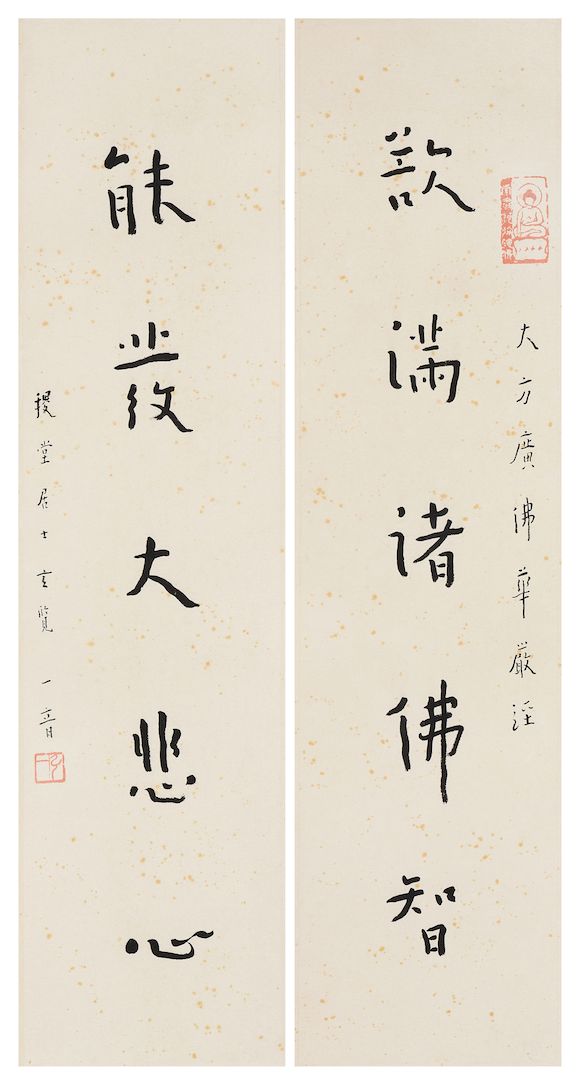 大方廣佛華嚴經
欲滿諸佛智
能發大悲心
稷堂居士玄覽 一音
弘一